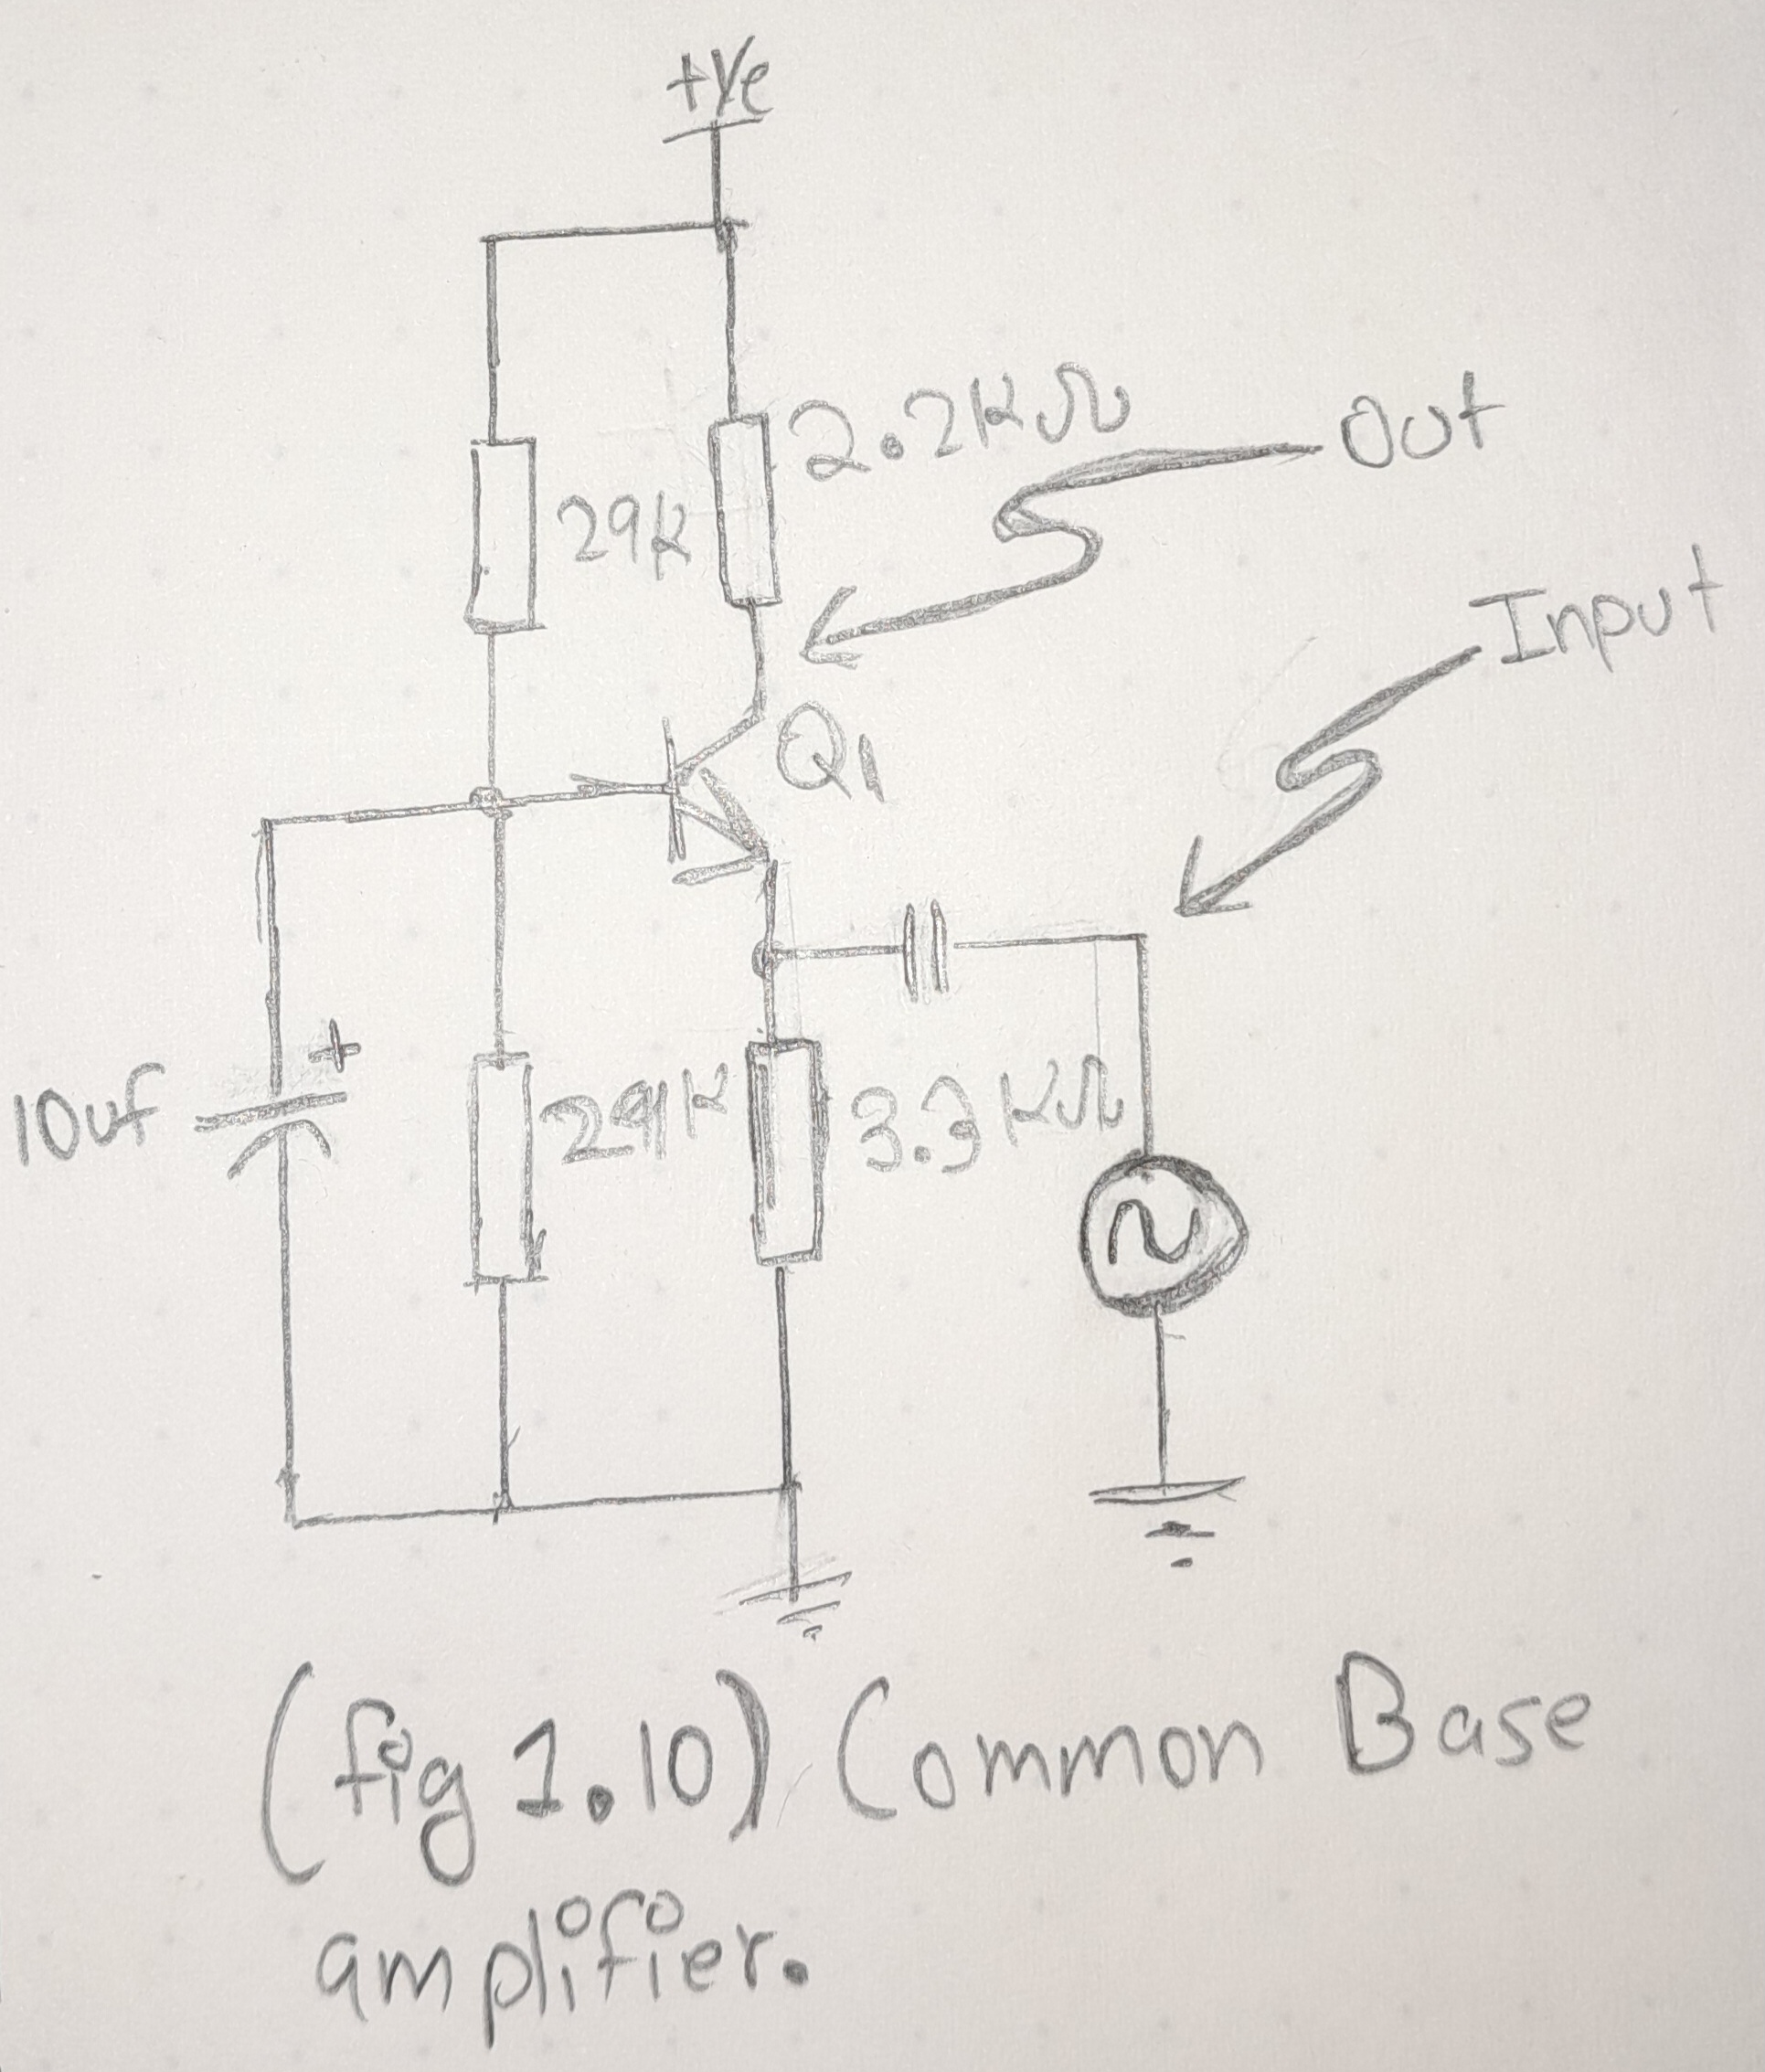 +Ve
2.2KΩ
Out
29K
Input
Q1
+
10uf
29K
3.3KΩ
(fig 1.10) Common Base
amplifier.